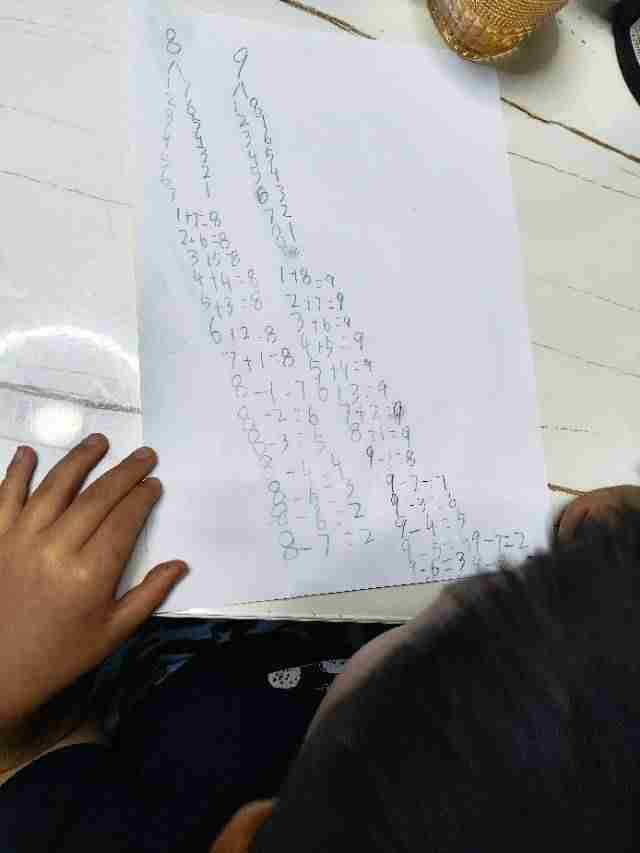 8
1 7
2 6
3 5
4 4
5 3
6 2
7 1
1+7=8
2+6=8
3+5=8
4+4=8
5+3=8
6+2=8
7+1=8
8-1-7
8-2=6
8-3=5
8-4=4
8-5=3
8-6=2
8-7=2
9
1 8
2 7
3 6
4 5
5 4
6 3
7 2
8 1
1+8=9
2+7=9
3+6=9
4+5=9
5+4=9
6+3=9
7+2=9
8+1=9
9-1=8
9-2-7
9-3=6
9-4=5
9-5=
9-6=3
9-7=2